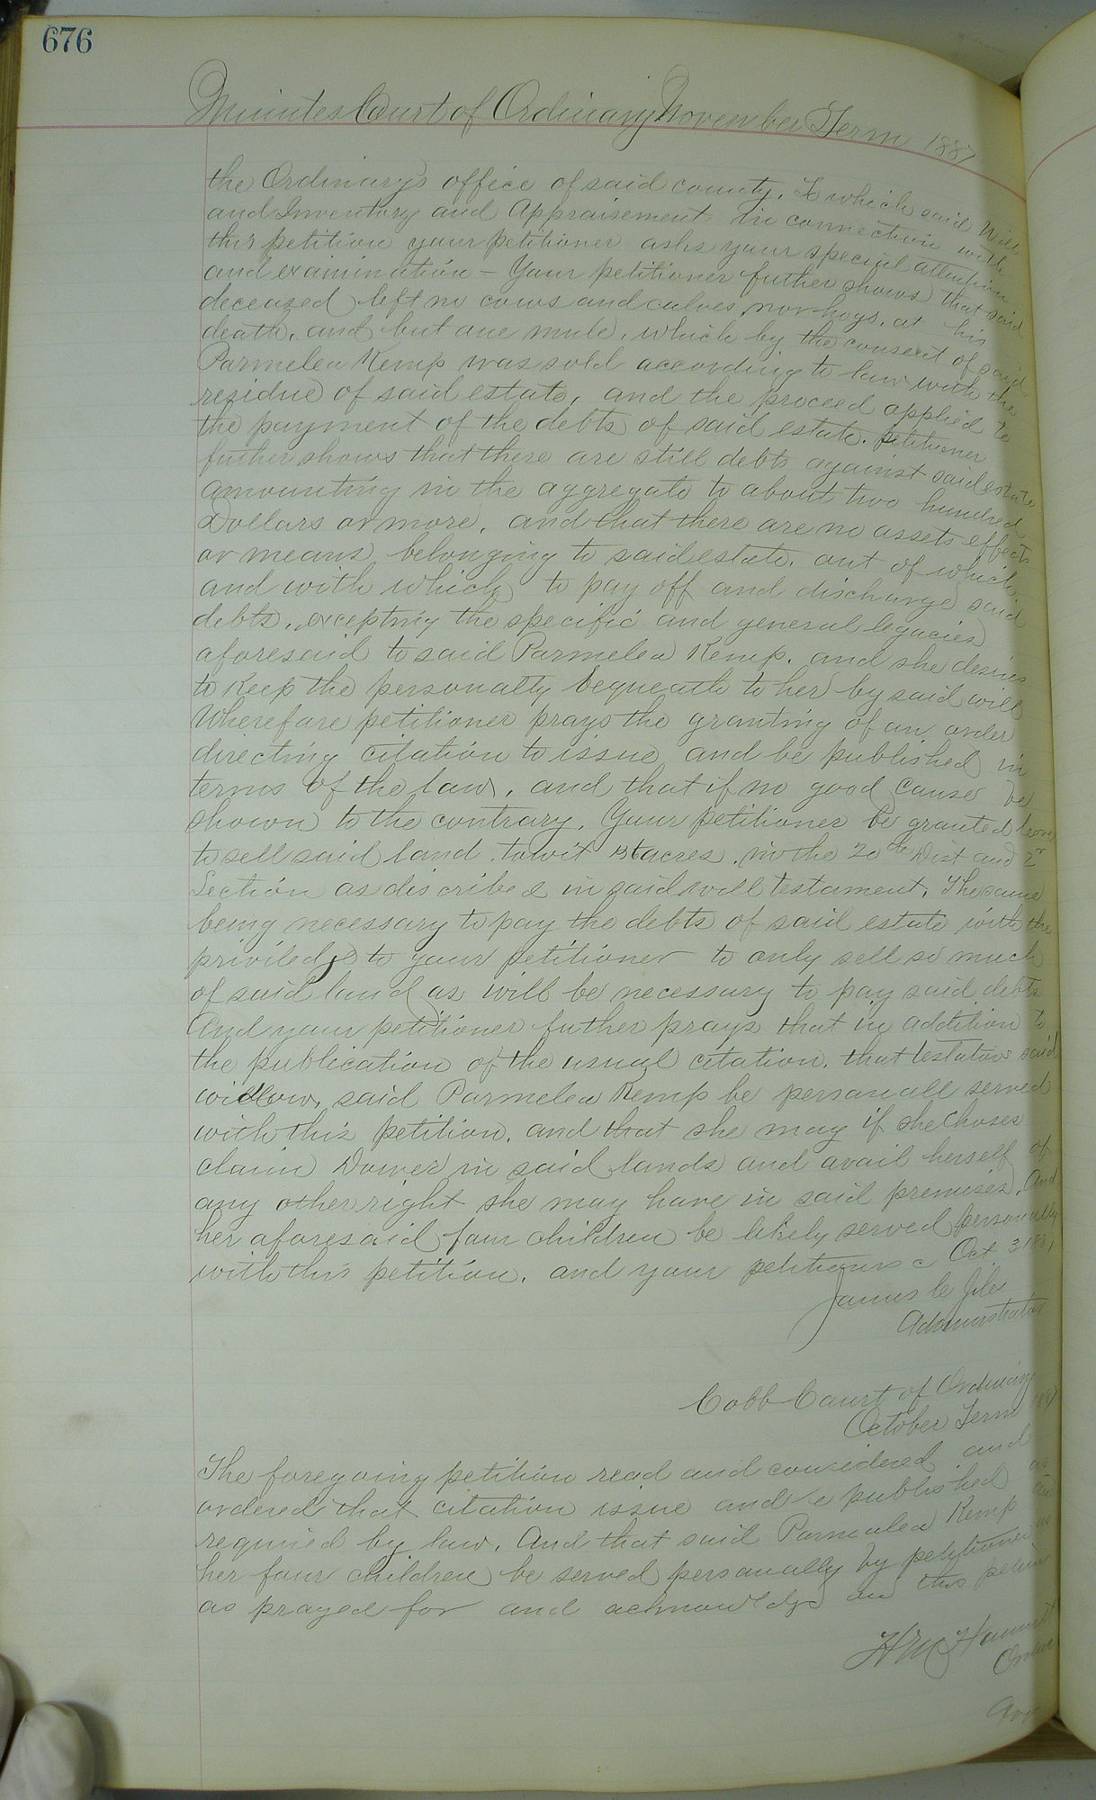 676
Minutes Court of Ordinary November Term 1887
the Ordinary's office of said county, To which said Will
and Inventory and Appraisement in connection with
this petition your petitioner asks your special attention
and examination - Your petitioner futher shows that said
deceased left no cows and calves, nor hogs, at his
death, and but one mule, which by the consent of said
Parmelea Kemp was sold according to law with the
residue of said estate, and the proceed applied to
the payment of the debts of said estate. petitioner
futher shows that there are still debts against said estate
amounting in the aggregate to about two hundred
Dollars or more, and that there are no assets effects
or means belonging to said estate. out of which
and with which to pay off and discharge said
debts, excepting the specific and general legacies
aforesaid to said Parmelea Kemp. and she desires
to keep the personalty bequeath to her by said will
Wherefore petitioner prays the granting of an order
directing citation to issue and be published in
terms of the law, and that if no good cause be
shown to the contrary, Your petitioner be granted leave
to sell said land. towit acres. in the 20th Dist and 2nd
Section as discribed in said will testament. The same
being necessary to pay the debts of said estate with the
priviledge to your petitioner to only sell so much
of said land as will be necessary to pay said debts
And your petitioner futher prays that in addition to
the publication of the usual citation. that testators said
widow, said Parmelea Kemp be personall served
with this petition, and that she may if she choses
claim Dower in said lands and avail herself of
any other right she may have in said premises. And
her aforesaid four children be likely served personally
with this petition, and your petitioner Oct 3 1887
James
Administrator
Cobb Court of Ordinary
October Term 1887
The foregoing petition read and considered and
ordered that citation issue and be published as
required by law. And that said Parmalea Kemp and
her four children be served personally by petitioner
as prayed for and acknowledge on this petition
H M Hammett